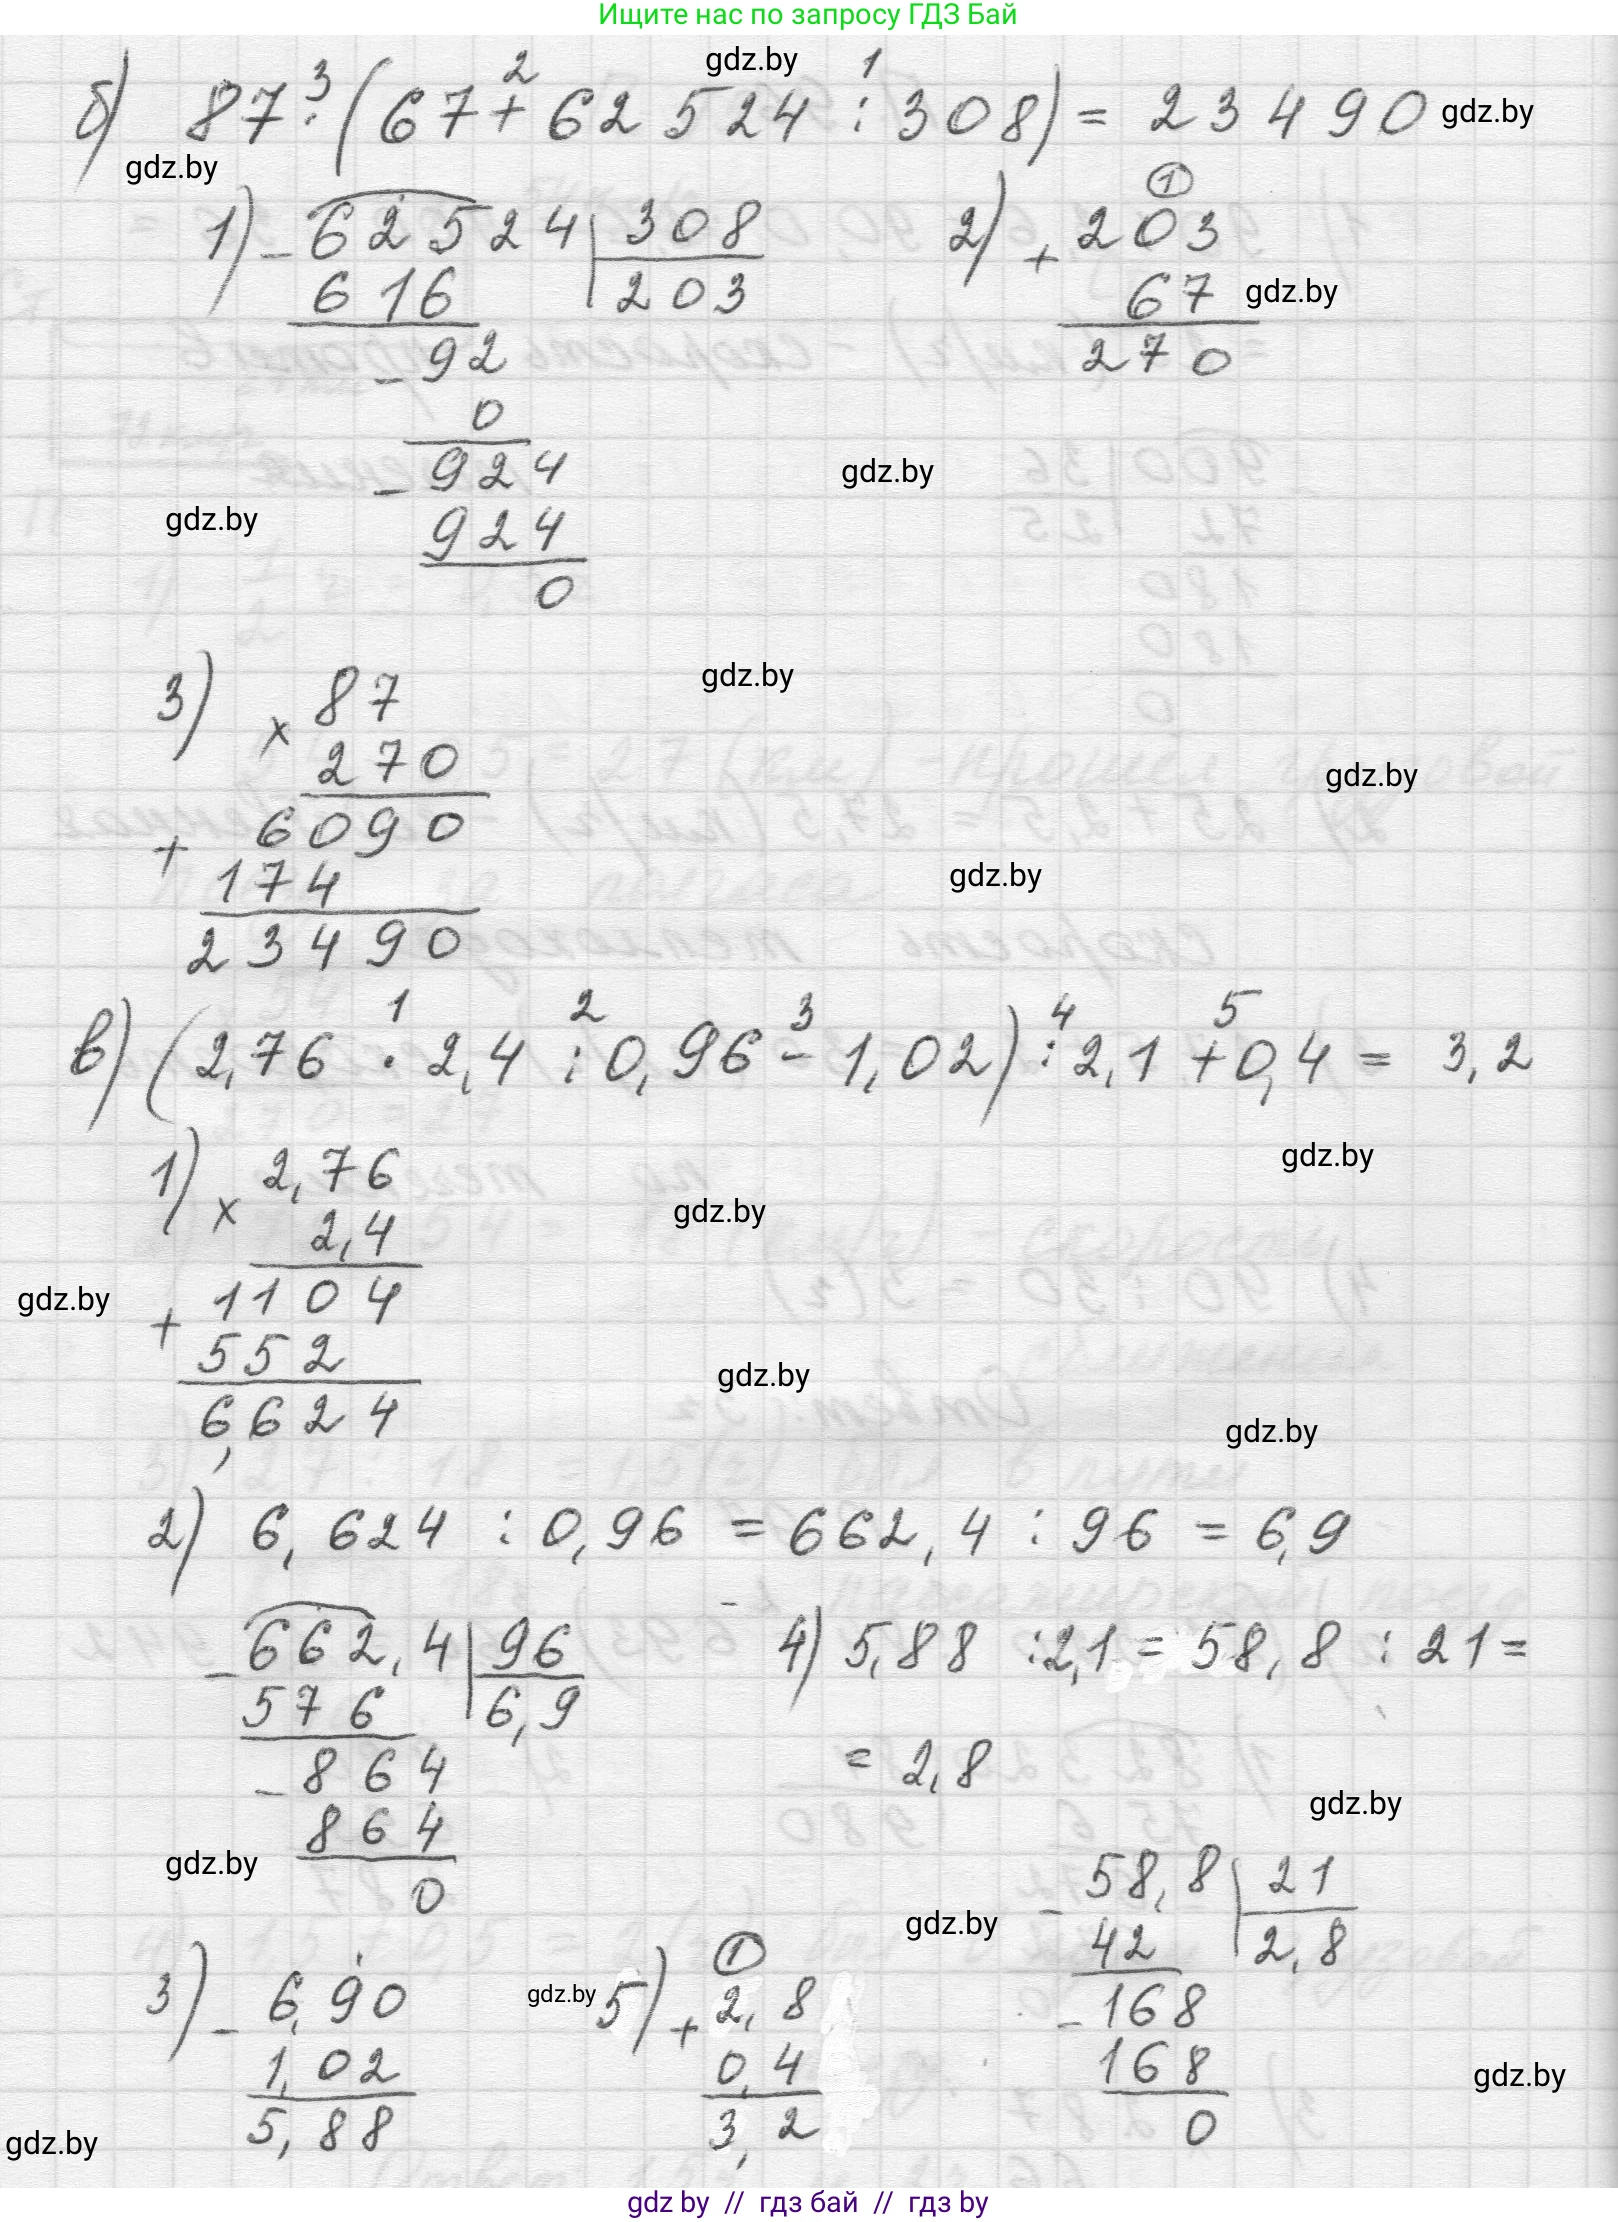 Ищите нас по запросу ГДЗ Бай
gdz.by
б) 87 · (67 + 62524 : 308) = 23490
3 2 1
gdz.by
gdz.by
1) - 62524 | 308
616 | 203
- 92
0
- 924
924
0
2) ①
+ 203
67
270
gdz.by
gdz.by
gdz.by
3) × 87
270
+ 6090
174
23490
gdz.by
gdz.by
gdz.by
1 2 3 4 5
в) (2,76 · 2,4 : 0,96 - 1,02) : 2,1 + 0,4 = 3,2
1) × 2,76
2,4
+ 1104
552
6,624
gdz.by
gdz.by
gdz.by
gdz.by
gdz.by
2) 6,624 : 0,96 = 662,4 : 96 = 6,9
- 662,4 | 96
576 | 6,9
- 864
864
0
gdz.by
4) 5,88 : 2,1 = 58,8 : 21 =
= 2,8
gdz.by
- 58,8 | 21
42 | 2,8
- 168
168
0
gdz.by
3) - 6,90
1,02
5,88
gdz.by
5) ①
+ 2,8
0,4
3,2
gdz.by
gdz.by
gdz by // гдз бай // гдз by